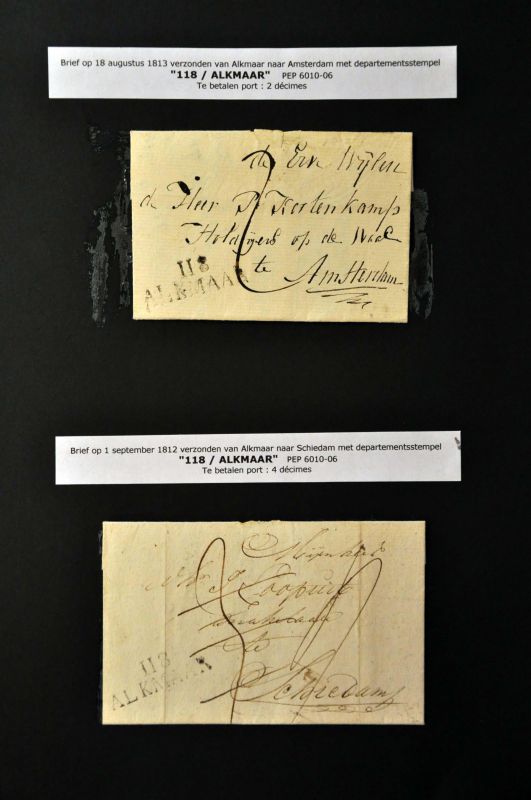 Brief op 18 augustus 1813 verzonden van Alkmaar naar Amsterdam met departementsstempel
"118 / ALKMAAR" PEP 6010-06
Te betalen port : 2 décimes
de Erve Wijlen
de Heer P Kortenkamp
op de Waal
te Amsterdam
118
ALKMAAR
Brief op 1 september 1812 verzonden van Alkmaar naar Schiedam met departementsstempel
"118 / ALKMAAR" PEP 6010-06
Te betalen port : 4 décimes
Mijnheer
te
Schiedam
118
ALKMAAR